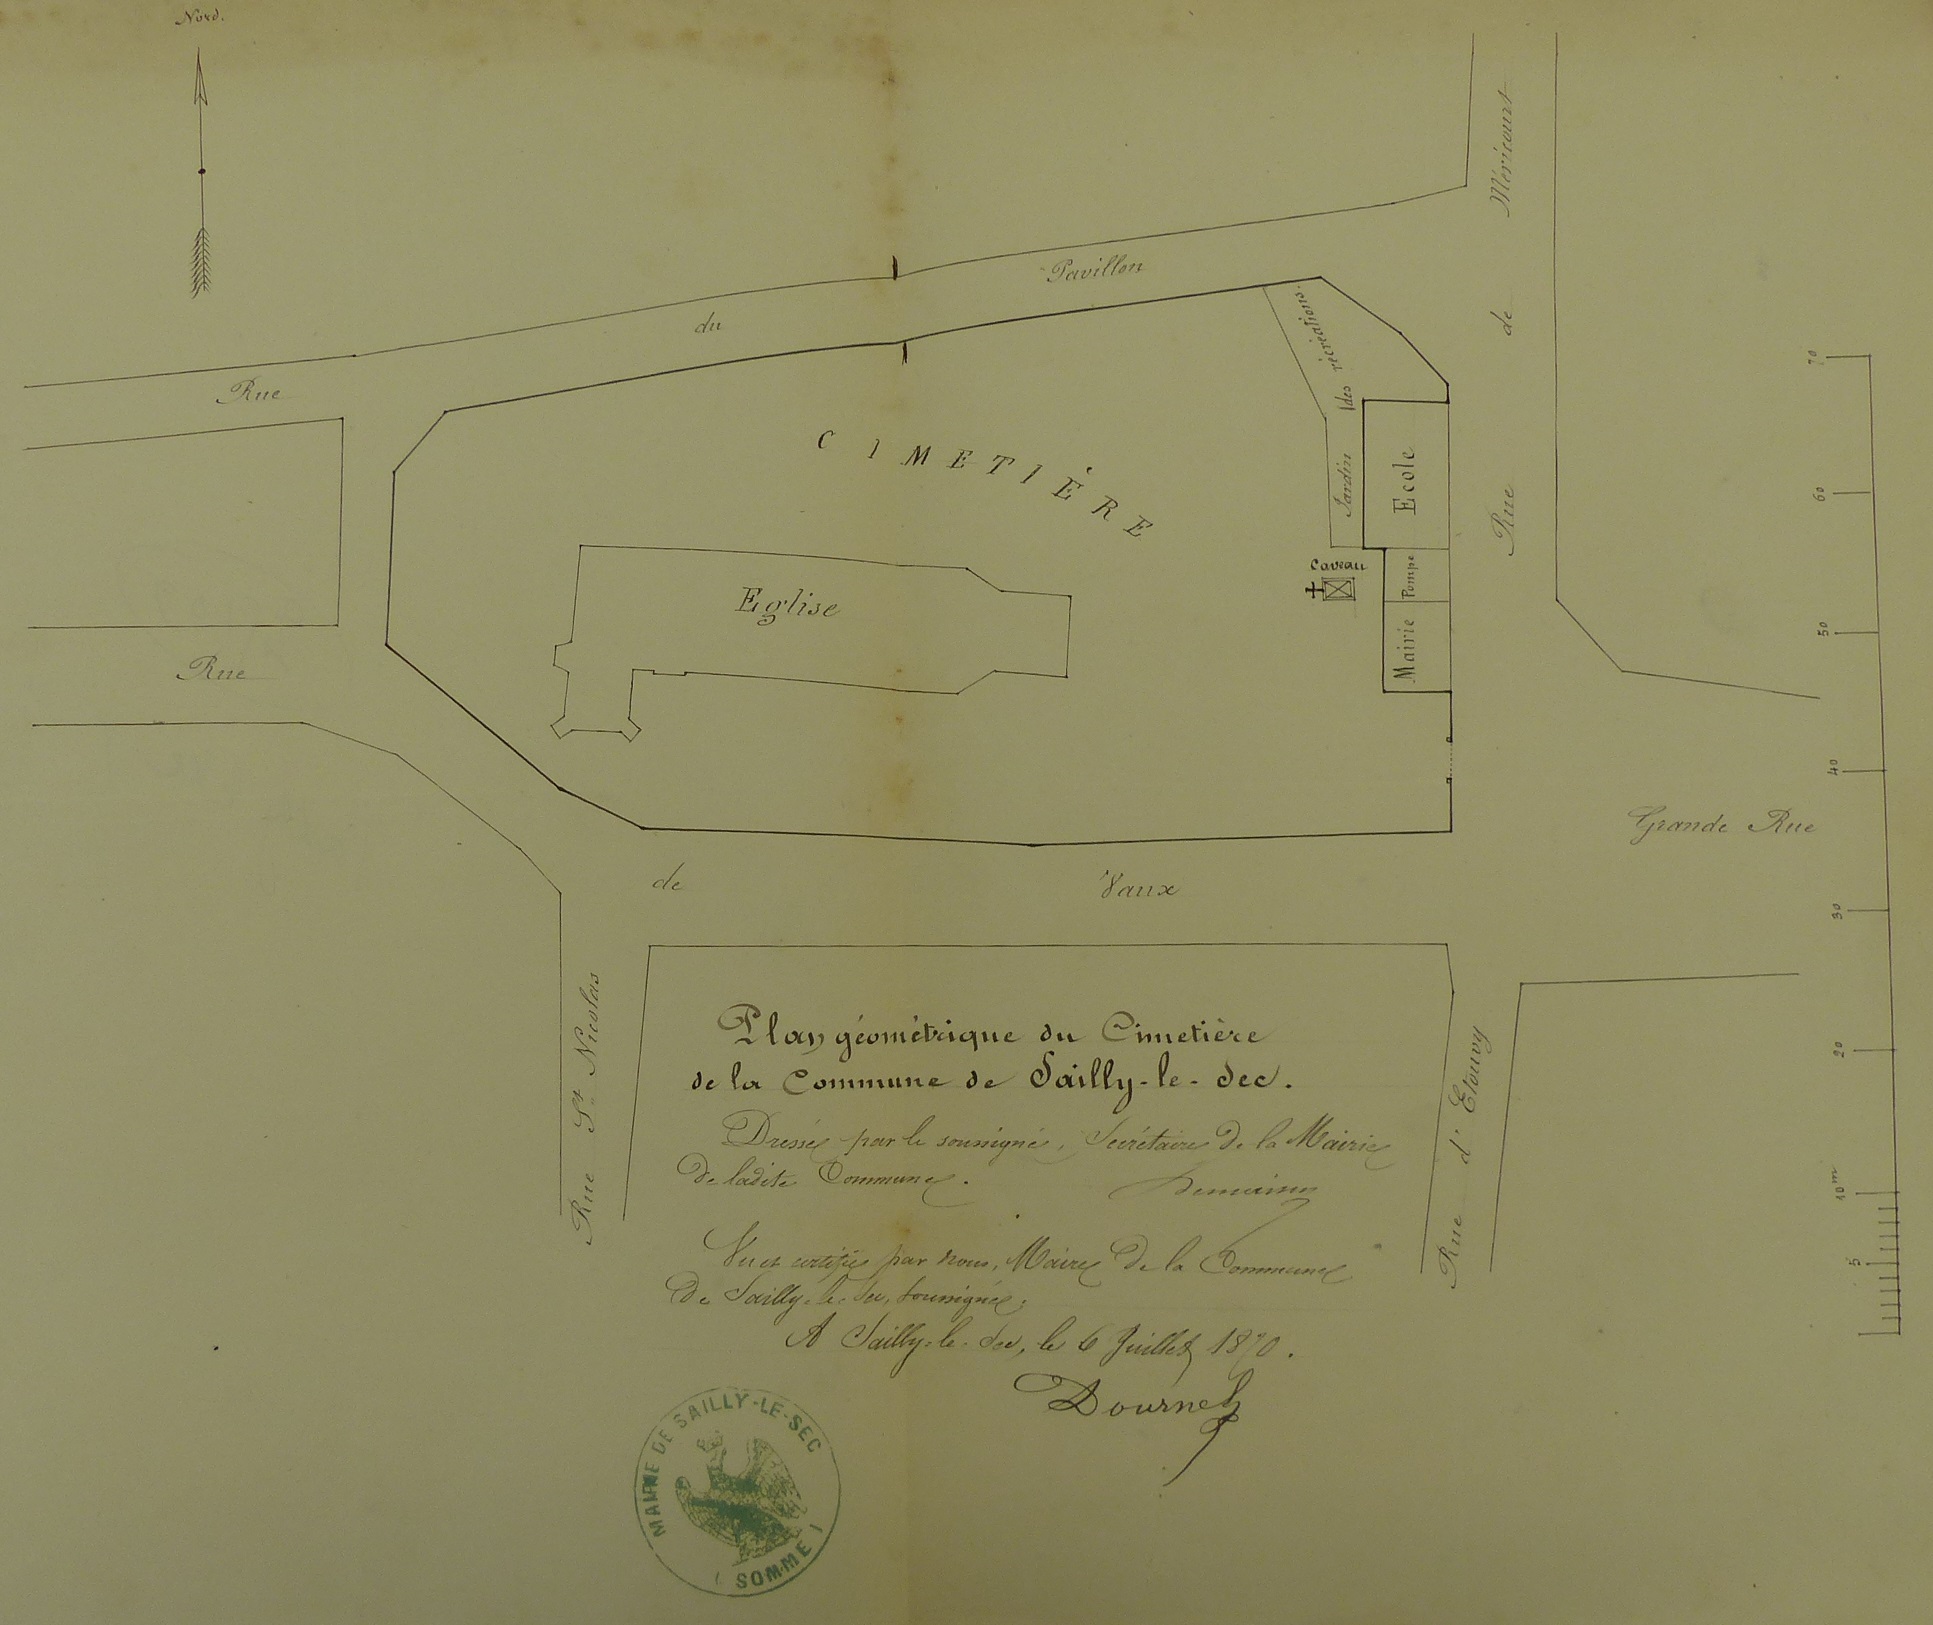 Nord.
Rue du Pavillon
Rue de Méricourt
Jardin des récréations.
CIMETIÈRE
Ecole
Caveau
Pompe
Eglise
Mairie
Rue de Vaux
Grande Rue
Rue St. Nicolas
Rue d'Etouvy
70
60
50
40
30
20
10m
5
Plan géométrique du Cimetière
de la Commune de Sailly-le-Sec.
Dressé par le soussigné, Secrétaire de la Mairie
de ladite Commune.
Vu et certifié par nous, Maire de la Commune
de Sailly-le-Sec, soussigné,
A Sailly-le-Sec, le 6 Juillet 1870.
Dournel
MAIRIE DE SAILLY-LE-SEC
(SOMME)